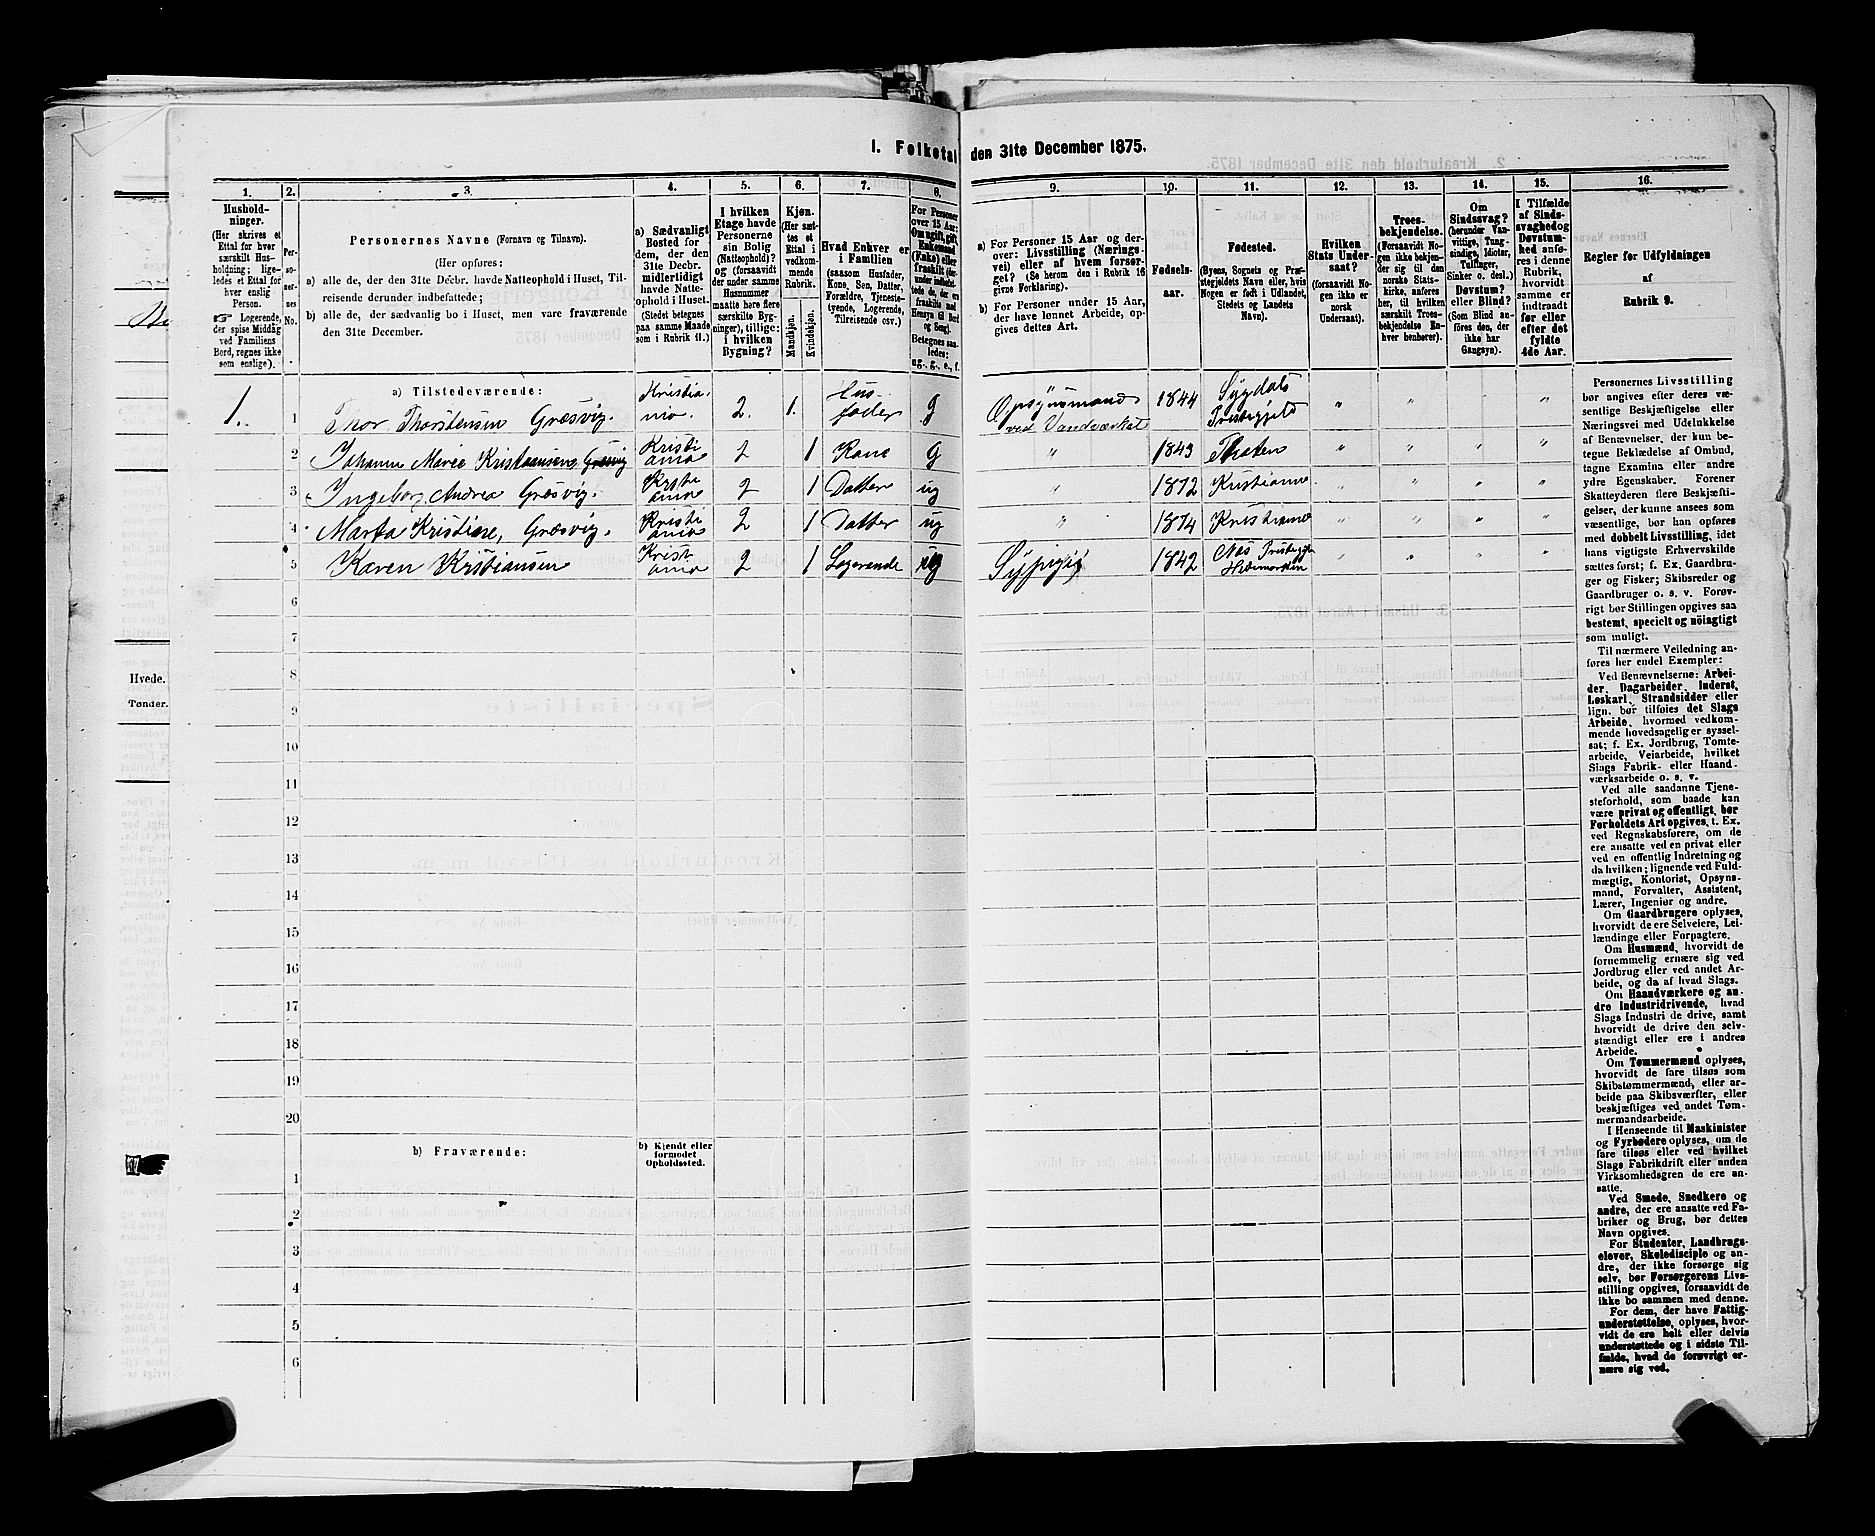 I. Folketal den 31te December 1875.
1. 2. 3. 4. 5. 6. 7. 8. 9. 10. 11. 12. 13. 14. 15. 16.
Husholdninger.
(Her skrives et
Ettal for hver
særskilt Husholdning;
ligeledes et Ettal for
hver enslig
Person.
Logerende,
der spise Middag
ved Familiens
Bord, regnes ikke
som enslige).
Personernes No.
Personernes Navne (Fornavn og Tilnavn).
(Her opføres:
a) alle de, der den 31te Decbr. havde Natteophold i Huset, Tilreisende
derunder indbefattede;
b) alle de, der sædvanlig bo i Huset, men vare fraværende
den 31te December.
a) Sædvanligt
Bosted for
dem, der den
31te Decbr.
midlertidigt
havde Natteophold
i Huset.
(Stedet betegnes
paa samme Maade
som i Rubrik 11.)
I hvilken
Etage havde
Personerne
sin Bolig
(Natteophold)?
og (forsaavidt
der under samme
Husnummer
maatte høre flere
særskilte Bygninger),
tillige:
i hvilken
Bygning?
Kjøn.
(Her sættes
et
Ettal i
vedkommende
Rubrik.
Mandkjøn.
Kvindekjøn.
Hvad Enhver er
i Familien
(saasom Husfader,
Kone, Søn, Datter,
Forældre, Tjenestetyende,
Logerende,
Tilreisende osv.)
For Personer
over 15 Aar:
Om ugift, gift,
Enkemand
(Enke) eller
fraskilt
Betegnes saaledes:
ug., g., e., f.
a) For Personer 15 Aar og derover:
Livsstilling (Næringsvei)
eller af hvem forsørget?
(Se herom den i Rubrik 16
givne Forklaring).
b) For Personer under 15 Aar,
der have lønnet Arbeide, opgives
dettes Art.
Fødselsaar.
Fødested.
(Byens, Sognets og Præstegjeldets
Navn eller, hvis
Nogen er født i Udlandet,
Stedets og Landets
Navn).
Hvilken
Stats Undersaat?
(forsaavidt Nogen
ikke er
norsk
Undersaat).
Troesbekjendelse.
(Forsaavidt Nogen
ikke bekjender
sig til den
norske Statskirke,
anføres
her, til hvilken
særskilt Troesbekjendelse
Enhver
henhører).
Om
Sindssvag?
(herunder Vanvittige,
Tungsindige,
Idioter,
Tullinger,
Sinker o. desl.)
Døvstum?
eller Blind?
(Som Blind anføres
den, der
ikke har
Gangsyn).
I Tilfælde
af Sindssvaghed
og
Døvstumhed
anføres
i denne
Rubrik,
hvorvidt
samme er
indtraadt
før eller
efter det
fyldte
4de Aar.
Regler for Udfyldningen
af
Rubrik 9.
a) Tilstedeværende:
1. 1 Thor Thorstensen Græsvig. Kristiania. 2. 1. Husfader g Opsynsmand ved Vandværket 1844 Sygdals Præstegjeld " " " "
2 Johanne Marie Kristiansens Græsvig Kristiania 2 1 Kone g " 1843 " " " "
3 Ingeborg Andrea Græsvig. 2 1 Datter ug " 1872 Kristiania " " " "
4 Marta Kristine, Græsvig. Kristiania 2 1 Datter ug " 1874 Kristiania " " " "
5 Karen Kristiansen Kristiania 2 1 Logerende ug Sypige 1842 Næs Hedemarken " " " "
6
7
8
9
10
11
12
13
14
15
16
17
18
19
20
b) Fraværende:
b) Kjendt eller
formodet
Opholdssted.
1
2
3
4
5
6
Personernes Livsstilling
bør angives efter deres væsentlige
Beskjæftigelse eller
Næringsvei med Udelukkelse
af Benævnelser, der kun betegne
Beklædelse af Ombud,
tagne Examina eller andre
ydre Egenskaber. Forener
Skatteyderen flere Beskjæftigelser,
der kunne ansees som
væsentlige, bør han opføres
med dobbelt Livsstilling, idet
hans vigtigste Erhvervskilde
sættes først; f. Ex. Gaardbruger
og Fisker; Skibsreder og
Gaardbruger o. s. v. Forøvrigt
bør Stillingen opgives saa
bestemt, specielt og nöiagtigt
som muligt.
Til nærmere Veiledning anføres
her endel Exempler:
Ved Benævnelserne: Arbeider,
Dagarbeider, Inderst,
Løskarl, Strandsidder eller
lign. bør tilføies det Slags
Arbeide, hvormed vedkommende
hovedsagelig er sysselsat;
f. Ex. Jordbrug, Tomtearbeide,
Veiarbeide, hvilket
Slags Fabrik- eller Haandværksarbeide
o. s. v.
Ved alle saadanne Tjenesteforhold,
som baade kan
være privat og offentligt, bør
Forholdets Art opgives, t. Ex.
ved Regnskabsførere, om de
ere ansatte ved en privat eller
ved en offentlig Indretning og
da hvilken; lignende ved Fuldmægtig,
Kontorist, Opsynsmand,
Forvalter, Assistent,
Lærer, Ingeniør og andre.
Om Gaardbrugere oplyses,
hvorvidt de ere Selveiere, Leilændinge
eller Forpagtere.
Om Husmænd, hvorvidt de
fornemmelig ernære sig ved
Jordbrug eller ved andet Arbeide,
og da af hvad Slags.
Om Haandværkere og andre
Industridrivende, hvad
Slags Industri de drive, samt
hvorvidt de drive den selvstændigt
eller ere i andres
Arbeide.
Om Tømmermænd oplyses,
hvorvidt de fare tilsøs som
Skibstømmermænd, eller arbeide
paa Skibsværfter, eller
beskjæftiges ved andet Tømmermandsarbeide.
I Henseende til Maskinister
og Fyrbødere oplyses, om de
fare tilsøs eller ved hvilket
Slags Fabrikdrift eller anden
Virksomhedsgren de ere ansatte.
Ved Smede, Snedkere og
andre, der ere ansatte ved Fabriker
og Brug, bør dettes
Navn opgives.
For Studenter, Landbrugselever,
Skoledisciple og andre,
der ikke forsørge sig
selv, bør Forsørgerens Livsstilling
opgives, forsaavidt de
ikke bo sammen med denne.
For dem, der have Fattigunderstøttelse,
oplyses, hvorvidt
de ere helt eller delvis
understøttede og i sidste Tilfælde,
hvad de forøvrigt ernære
sig ved.
Hvede.
Tønder.